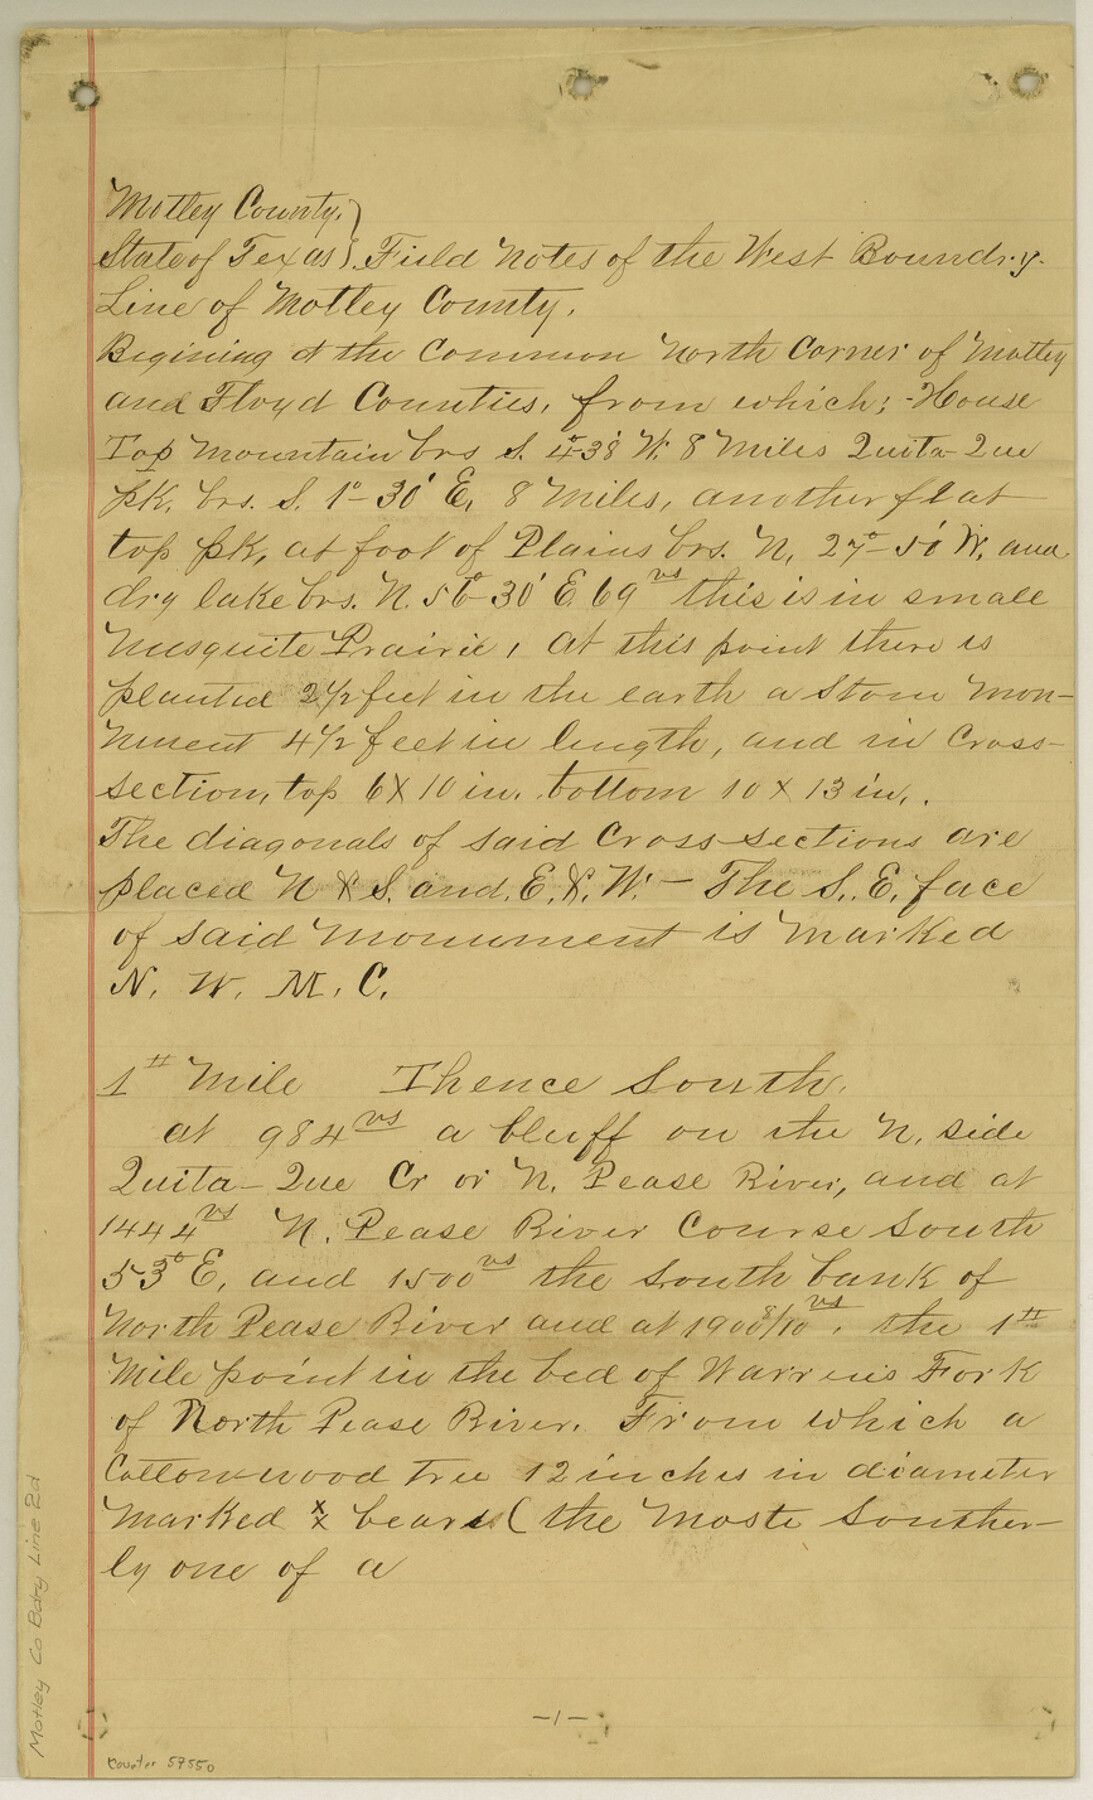 Motley County. }
State of Texas } Field Notes of the West Boundry
Line of Motley County.
Begining at the Common North Corner of Motley
and Floyd Counties, from which; House
Top Mountain brs S. 4°-38' W. 8 Miles Quita-Que
pk. brs. S. 1°-30' E, 8 Miles, another flat
top pk, at foot of Plains brs. N, 27°-51' W. and
dry lake brs. N. 56°-30' E. 69 vs this is in small
Musquite Prairie, at this point there is
planted 2 1/2 feet in the earth a Stone Mon-
nment 4 1/2 feet in length, and in Cross-
section, top 6 X 10 in. bottom 10 X 13 in,.
The diagonals of said Cross-sections are
placed N & S. and E. &. W. - The S. E. face
of said Monument is Marked
N. W. M. C.
1st Mile Thence South.
at 984 vs a bluff on the N. side
Quita-Que Cr or N. Pease River, and at
1444 vs N. Pease River Course South
53° E, and 1500 vs the South bank of
North Pease River and at 1900 8/10 vs. the 1st
Mile point in the bed of Warrens Fork
of North Pease River. From which a
Cottonwood Tree 12 inches in diameter
Marked x/x bears (the Moste Souther-
ly one of a
-1-
Motley Co Bdry Line 2d
Counter 57550